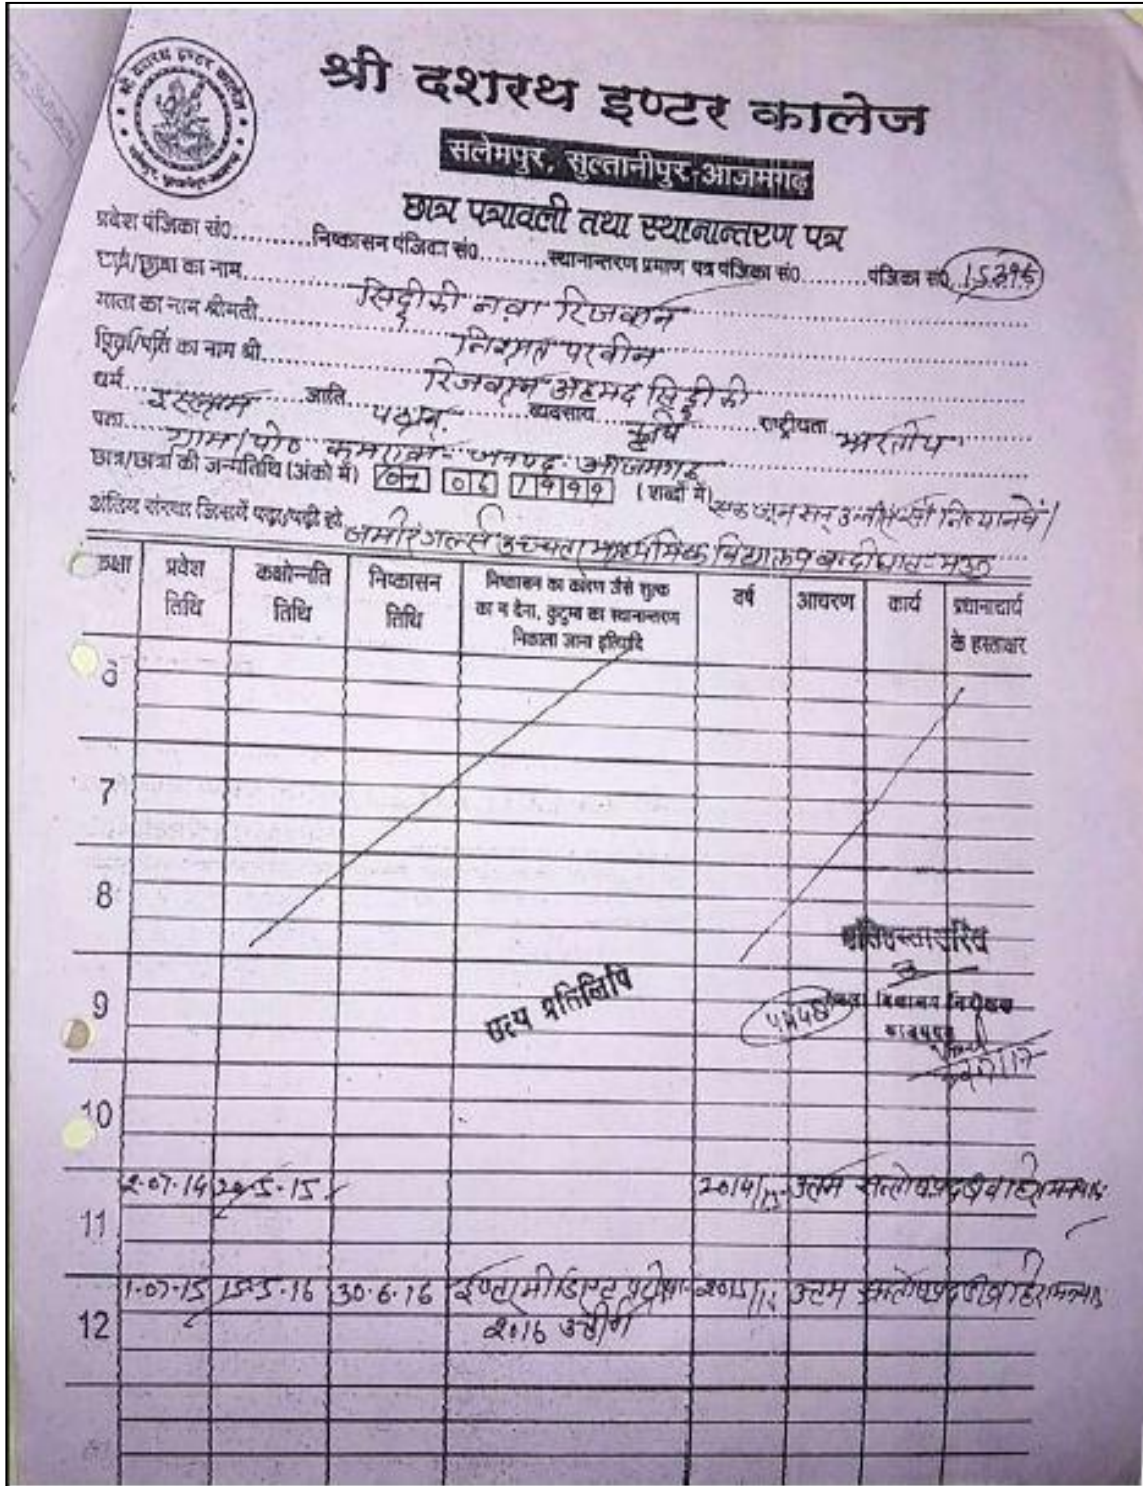 श्री दशरथ इण्टर कालेज
सलेमपुर, सुल्तानीपुर-आजमगढ़
छात्र पत्रावली तथा स्थानान्तरण पत्र
प्रवेश पंजिका सं0..........निष्कासन पंजिका सं0.........स्थानान्तरण प्रमाण पत्र पंजिका सं0..........पंजिका सं0
छात्र/छात्रा का नाम सिद्दीकी नवा रिजवान
माता का नाम श्रीमती निशात परवीन
पिता/पति का नाम श्री रिजवान अहमद सिद्दीकी
धर्म इस्लाम जाति पठान. व्यवसाय कृषि राष्ट्रीयता भारतीय
पता ग्राम/पो0 जनपद-आजमगढ़
छात्र/छात्रा की जन्मतिथि (अंको में) 01 06 1999 (शब्दों में) एक जून सन् उन्नीस सौ निन्यानवें।
अंतिम संस्था जिसमें पढ़ा/पढ़ी हो गर्ल्स उच्चतर माध्यमिक विद्यालय
कक्षा प्रवेश तिथि कक्षोन्नति तिथि निष्कासन तिथि निष्कासन का कारण जैसे शुल्क का न देना, कुटुम्ब का स्थानान्तरण निकाला जाना इत्यादि वर्ष आचरण कार्य प्रधानाचार्य के हस्ताक्षर
6
7
8
प्रतिहस्ताक्षरित
सत्य प्रतिलिपि
जिला विद्यालय निरीक्षक
9
10
11 2-07-14 20-5-15 2014/15 उत्तम संतोषप्रद
12 1-07-15 15-5-16 30-6-16 इण्टरमीडिएट परीक्षा 2015/16 उत्तम संतोषप्रद
2016 उत्तीर्ण